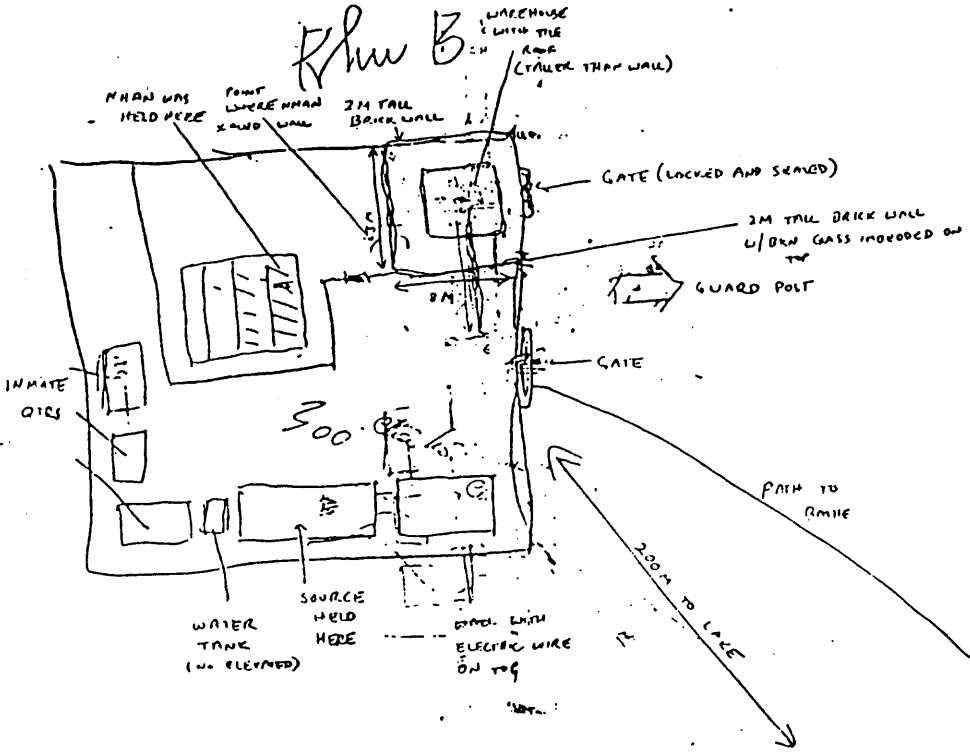 B
WAREHOUSE
WITH TILE
ROOF
(TALLER THAN WALL)
NHAN WAS
HELD HERE
POINT
WHERE NHAN
WALL
2M TALL
BRICK WALL
GATE (LOCKED AND SEALED)
2M TALL BRICK WALL
W/BKN GLASS IMBEDDED ON
TOP
GUARD POST
8M
GATE
INMATE
QTRS
300
PATH TO
200M TO LAKE
WATER
TANK
(NO ELEVATED)
SOURCE
HELD
HERE
WITH
ELECTRIC WIRE
ON TOP